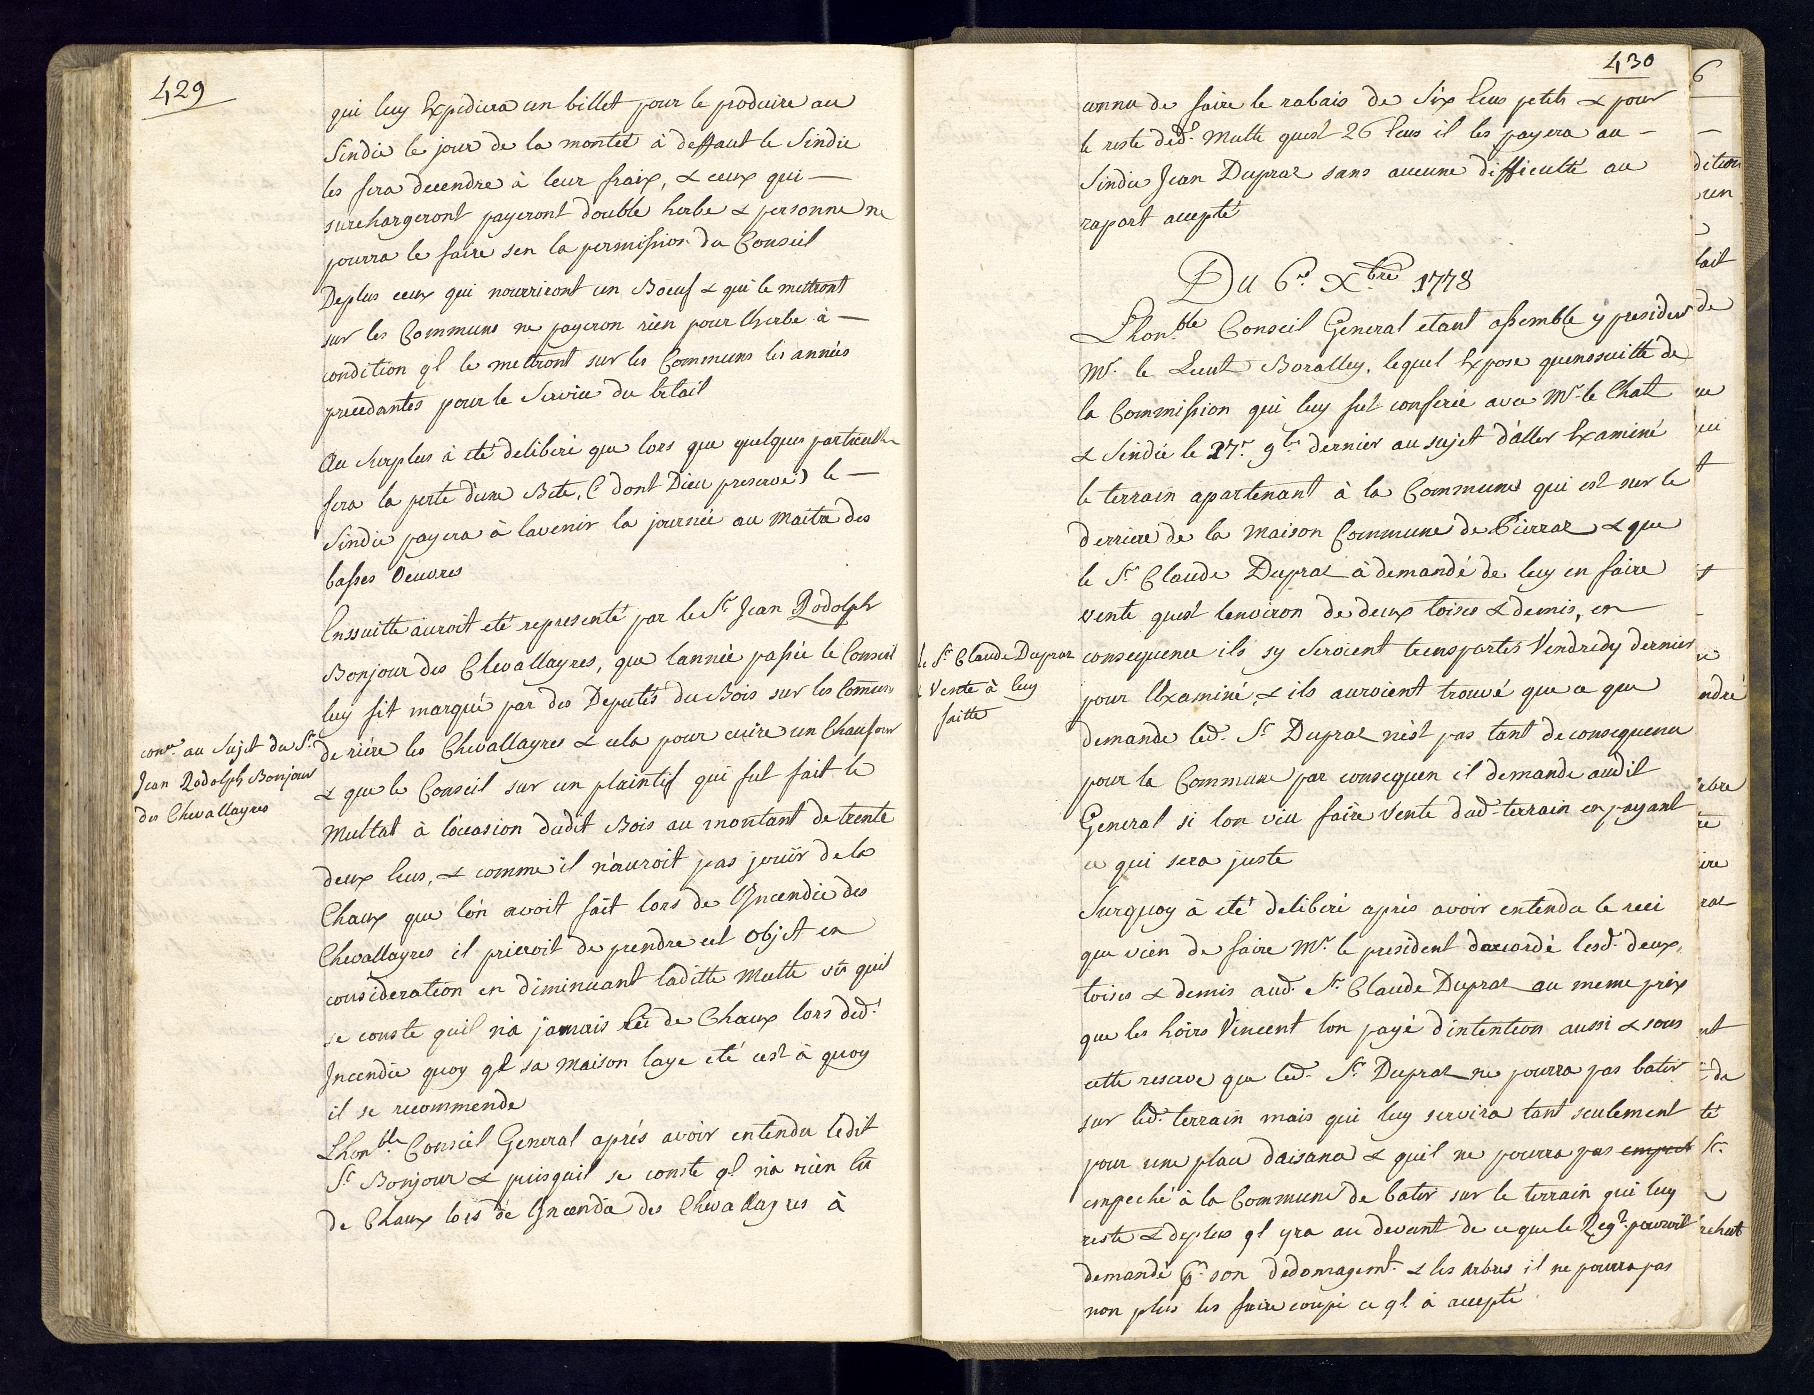 429
qui luy Expediera un billet pour le produire au
Sindic le jour de la monteé à deffaut le Sindic
les fera decendre à leur fraix, & ceux qui —
surchargeront payeront double herbe & personne ne
pourra le faire sen la permission du Conseil
Deplus ceux qui nourriront un Boeuf & qui le mettront
sur les Communs ne payeron rien pour lherbe à —
condition ql le mettront sur les Communs les années
precedantes pour le Service du betail
Au Surplus à eté deliberé que lors que quelques particullie
fera la perte d'une Bete, ( dont Dieu preserve ) le —
Sindic payera à lavenir la journée au Maitre des
basses Oeuvres
Enssuitte auroit eté representé par le Sr. Jean Rodolph
Bonjour des Chevallayres, que lannée passée le Conseil
luy fit marqué par des Deputés du Bois sur les Comuns
de riére les Chevallayres & cela pour cuire un Chaufour
& que le Conseil sur un plaintif qui fut fait le
Multat à loccasion dudit Bois au montant de trente
deux Ecus, & comme il n'auroit pas jouïr de la
Chaux que lon avoit fait lors de l'Incendie des
Chevallayres il prieroit de prendre cet Objet en
consideration en diminuant laditte Multe vû quil
se conste quil n'a jamais Eû de Chaux lors dedt.
Incendie quoy ql sa maison laye eté cest à quoy
il se recommende
Lhonble. Conseil General aprés avoir entendu ledit
Sr. Bonjour & puisquil se conste ql n'a rien Eû
de Chaux lors de Incendie des Chevallayres à
conr. au Sujet du Sr.
Jean Rodolph Bonjour
des Chevallayres
430
connu de faire le rabais de Six Ecus petits & pour
le reste dedt. Multe quest 26 Ecus il les payera au —
Sindic Jean Dupraz sans aucune difficulté au
raport accepté
Du 6e. Xbre 1778
Lhonble Conseil General etant assemble y presidens
Mr. le Lieut Boralley, lequel Expose quenssuitte de
la Commission qui luy fut conferée avec Mr. le Chat
& Sindic le 27e. 9bre dernier au sujet d'aller Examiné
le terrain apartenant à la Commune qui est sur le
derriere de la maison Commune de Pierraz & que
le Sr. Claude Dupraz à demandé de luy en faire
vente quest lenviron de deux toises & demis, en
consequence ils sy seroient trensportés Vendredy dernier
pour lExaminé, & ils auroient trouvé que ce que
demande led. Sr. Dupraz n'est pas tant de consequence
pour la Commune par consequen il demande audit
General si lon veu faire Vente dud. terrain en payant
ce qui sera juste
Surquoy à eté deliberé aprés avoir entendu le reci
que vien de faire Mr. le president daccordé lesd. deux
toises & demis aud. Sr. Claude Dupraz au meme prix
que les hoirs Vincent lon payé d'intention aussi & sous
cette reserve que led. Sr. Dupraz ne pourra pas batir
sur led. terrain mais qui luy servira tant seulement
pour une place daisance & quil ne pourra pas empech
empeché à la Commune de batir sur le terrain qui luy
reste & deplus ql yra au devant de ce que le Regt. pourroit
demandé pr. son dedomagemt. & les Arbres il ne pourra pas
non plus les faire coupé ce ql à accepté
le Sr. Claude Dupraz
Vente à luy
faitte